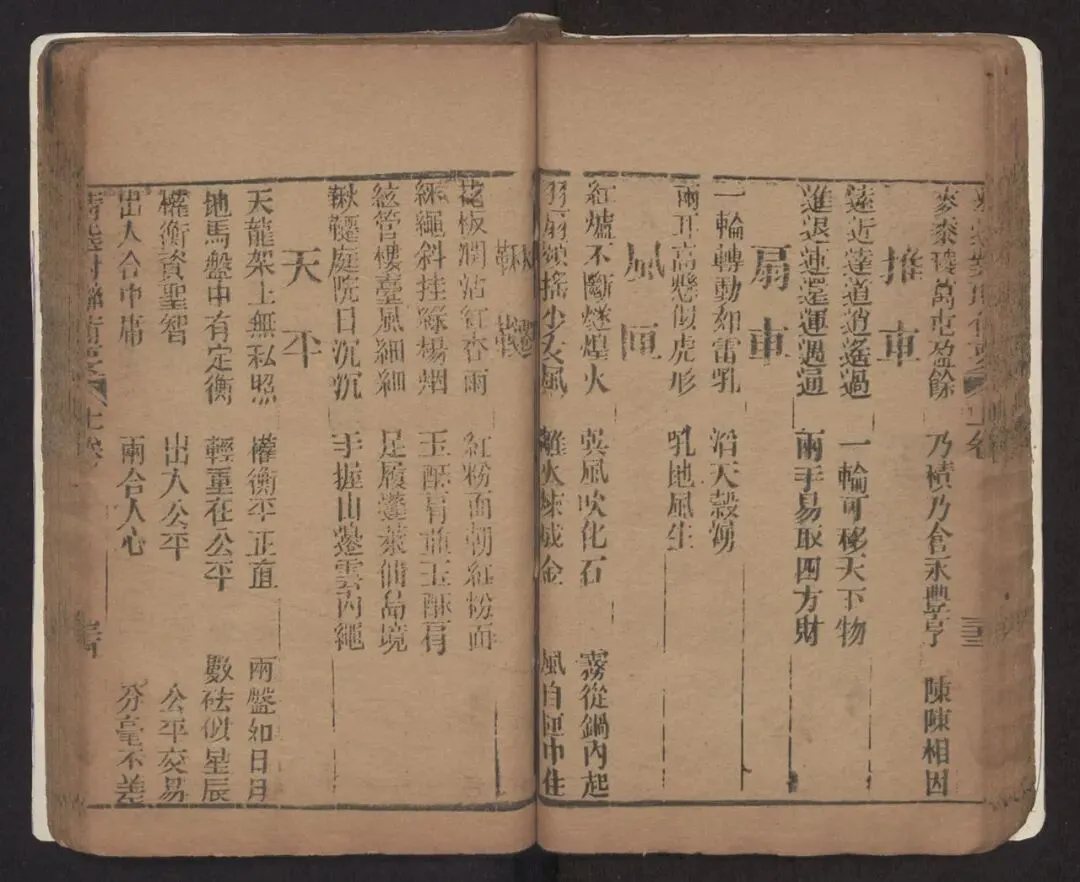 麥黍稷萬屯盈餘 乃積乃倉永豐亨 陳陳相因
推車
遠近達道逍遙過 一輪可移天下物
進退連還運過通 兩手易取四方財
扇車
一輪轉動如雷乳 滔天榖湧
兩耳高懸似虎形 乳地風生
風匣
紅爐不斷煙煌火 巽風吹化石 霧從鍋內起
扇頻搖少女風 離火煉成金 風自匣中住
鞦韆
花板潤沾紅杏雨 紅粉面朝紅粉面
綵繩斜挂綠楊烟 玉酥肩並玉酥肩
絃管樓臺風細細 足履蓬萊僊島境
鞦韆庭院日沉沉 手握山邊雲內繩
天平
天龍架上無私照 權衡平正直 兩盤如日月
地馬盤中有定衡 輕重在公平 數砝似星辰
權衡資聖智 出入公平 公平交易
出入合中庸 兩合人心 分毫不差
上卷